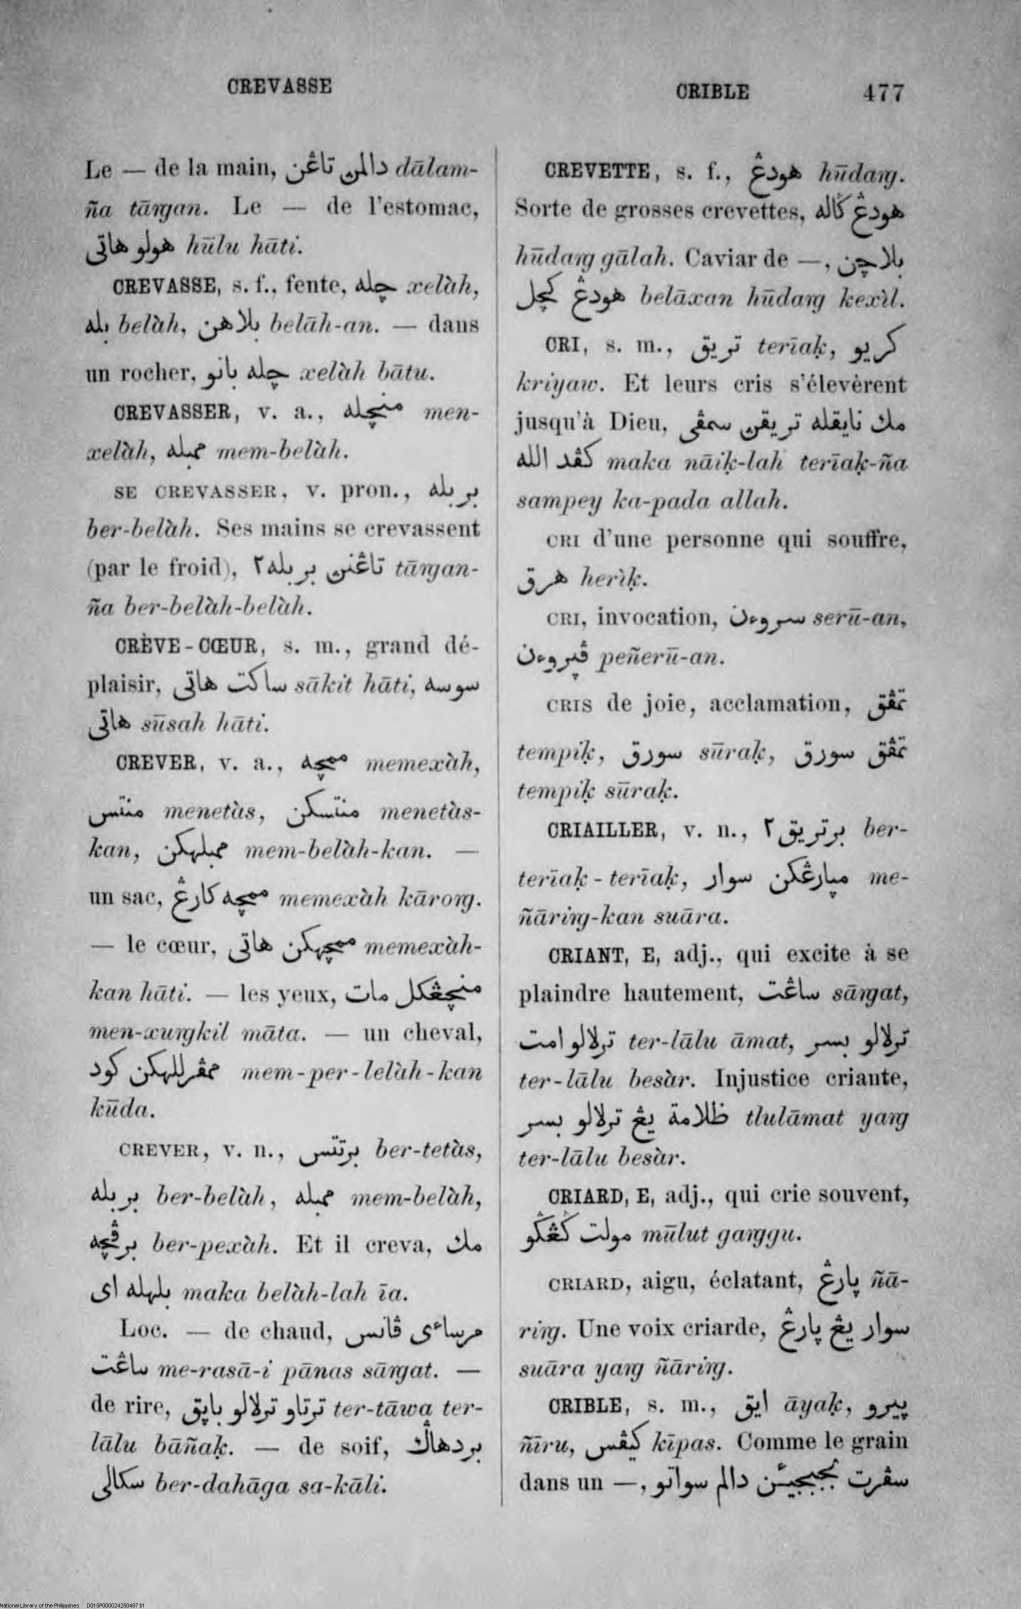 CREVASSE
CRIBLE 477
Le — de la main, دالمن تاڠن dālam-
ña tāŋgan. Le — de l'estomac,
هولو هاتي hūlu hāti.
CREVASSE, s. f., fente, چله xelàh,
بله belàh, بلاهن belāh-an. — dans
un rocher, چله باتو xelàh bātu.
CREVASSER, v. a., منچله men-
xelàh, ممبله mem-belàh.
SE CREVASSER, v. pron., بربله
ber-belàh. Ses mains se crevassent
(par le froid), تاڠنن بربله٢ tāŋgan-
ña ber-belàh-belàh.
CRÈVE-CŒUR, s. m., grand dé-
plaisir, ساكت هاتي sākit hāti, سوسه
هاتي sūsah hāti.
CREVER, v. a., ممچه memexàh,
منتس menetàs, منتسكن menetàs-
kan, ممبلهكن mem-belàh-kan. —
un sac, ممچه كارڠ memexàh kāroŋg.
— le cœur, ممچهكن هاتي memexàh-
kan hāti. — les yeux, منچڠكل مات
men-xuŋgkil māta. — un cheval,
ممڤرللهكن كود mem-per-lelàh-kan
kūda.
CREVER, v. n., برتتس ber-tetàs,
بربله ber-belàh, ممبله mem-belàh,
برڤچه ber-pexàh. Et il creva, مك
بلهله اى maka belàh-lah īa.
Loc. — de chaud, مرساءى ڤانس
ساڠت me-rasā-i pānas sāŋgat. —
de rire, ترتاو ترلالو باپق ter-tāwa ter-
lālu bāñaḳ. — de soif, بردهاݢ
سكالي ber-dahāga sa-kāli.
CREVETTE, s. f., هودڠ hūdaŋg.
Sorte de grosses crevettes, هودڠ ݢاله
hūdaŋg gālah. Caviar de —, بلاچن
هودڠ كچل belāxan hūdaŋg kexil.
CRI, s. m., تريق terīaḳ, كريو
kriyaw. Et leurs cris s'élevèrent
jusqu'à Dieu, مك نايقله تريقن سمڤي
كڤد الله maka nāiḳ-lah terīaḳ-ña
sampey ka-pada allah.
CRI d'une personne qui souffre,
هرق heriḳ.
CRI, invocation, سروءن serū-an,
ڤپروءن peñerū-an.
CRIS de joie, acclamation, تمڤق
tempiḳ, سورق sūraḳ, تمڤق سورق
tempiḳ sūraḳ.
CRIAILLER, v. n., برتريق٢ ber-
terīaḳ-terīaḳ, مپارڠكن سوار me-
ñāriŋg-kan suāra.
CRIANT, E, adj., qui excite à se
plaindre hautement, ساڠت sāŋgat,
ترلالو امت ter-lālu āmat, ترلالو بسر
ter-lālu besàr. Injustice criante,
ظلامة يڠ ترلالو بسر tlulāmat yaŋg
ter-lālu besàr.
CRIARD, E, adj., qui crie souvent,
مولت ݢڠݢو mūlut gaŋggu.
CRIARD, aigu, éclatant, پارڠ ñā-
riŋg. Une voix criarde, سوار يڠ پارڠ
suāra yaŋg ñāriŋg.
CRIBLE, s. m., ايق āyaḳ, پيرو
ñīru, كيڤس kīpas. Comme le grain
dans un —, سڤرت دالم سواتو
National Library of the Philippines